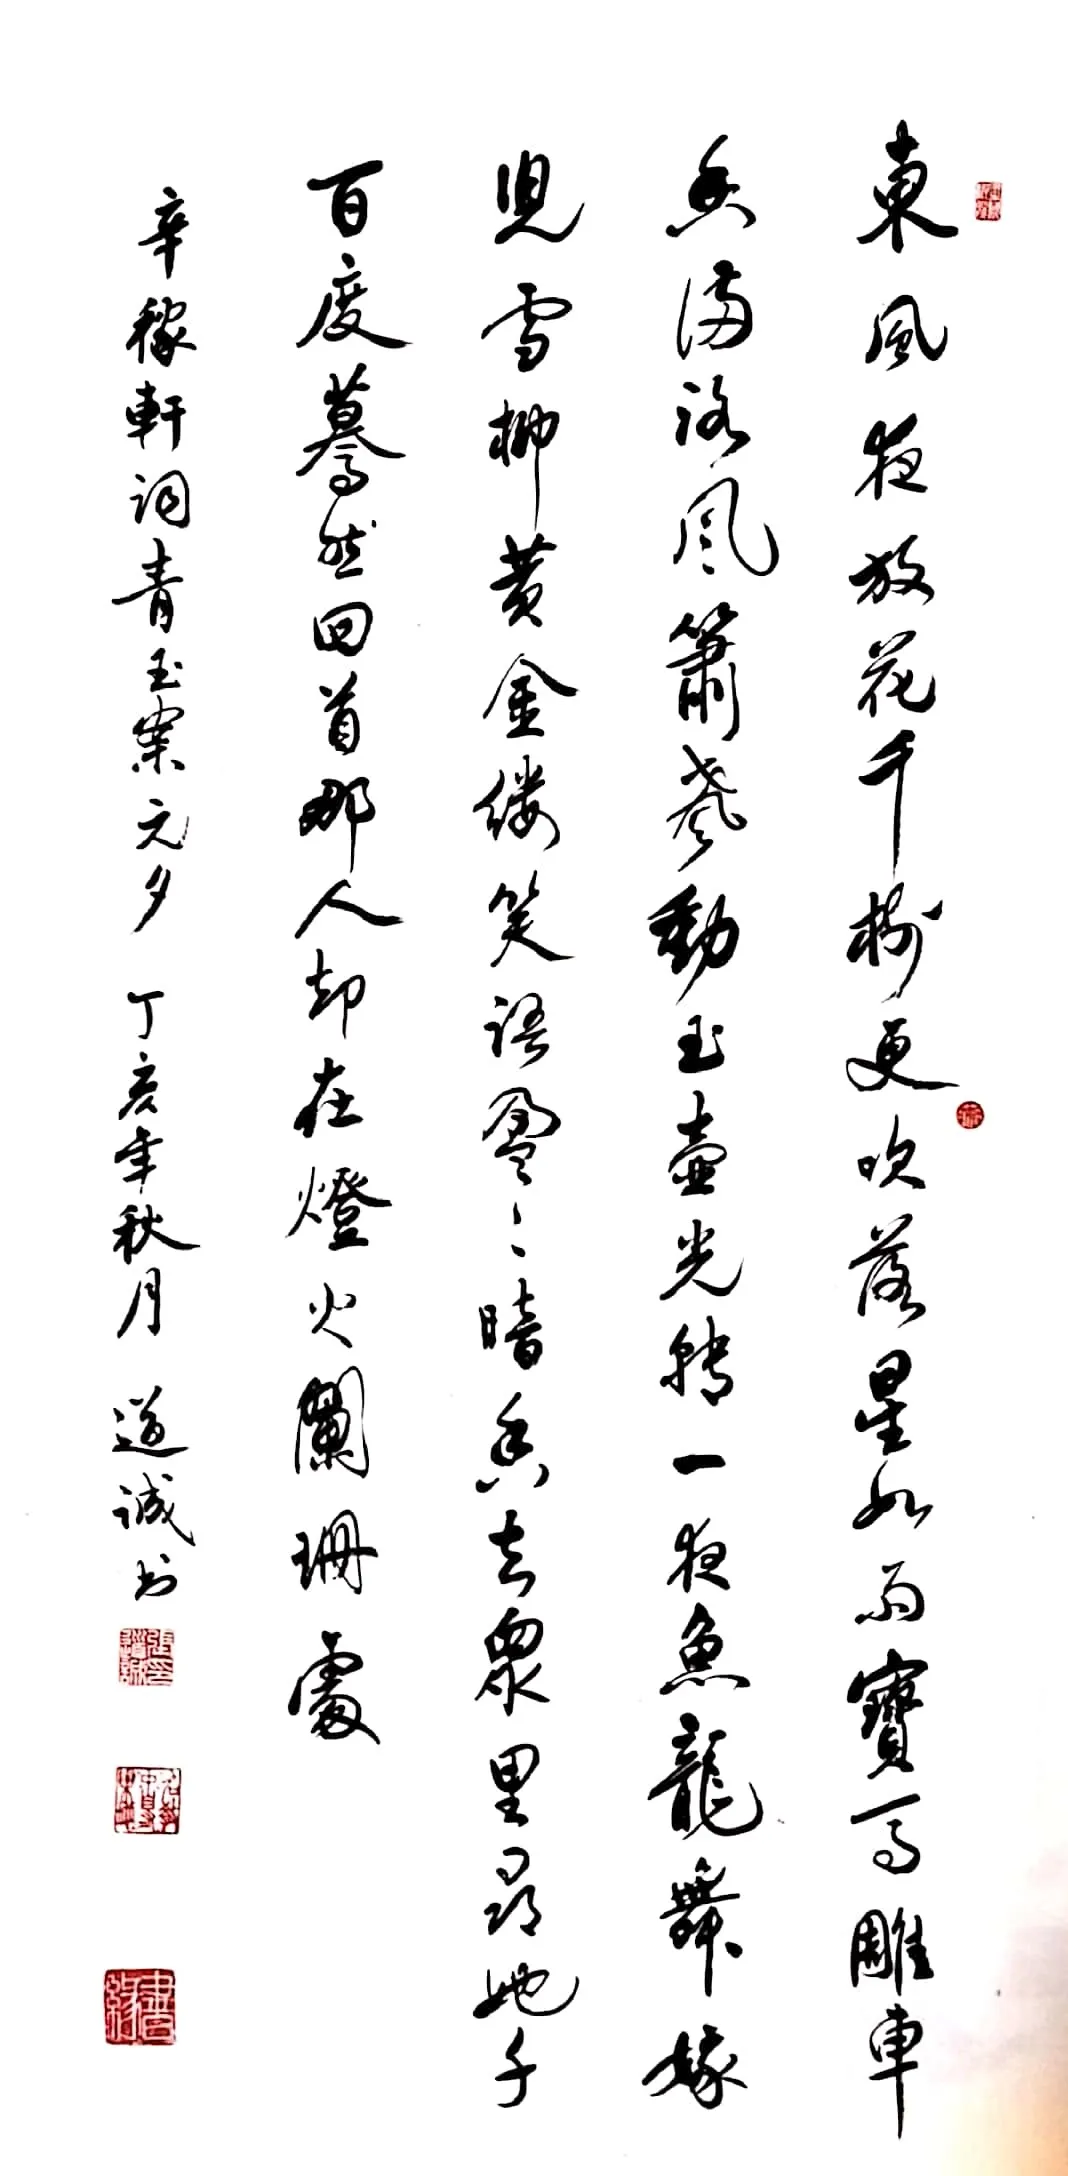 東風夜放花千樹更吹落星如雨寶馬雕車
香满路风簫聲動玉壺光轉一夜魚龍舞嫁
児雪柳黄金缕笑語盈〻暗香去衆里尋她千
百度驀然回首那人却在燈火闌珊處
辛稼軒詞青玉案元夕 丁亥年秋月 道诚书
張道誠印
書緣